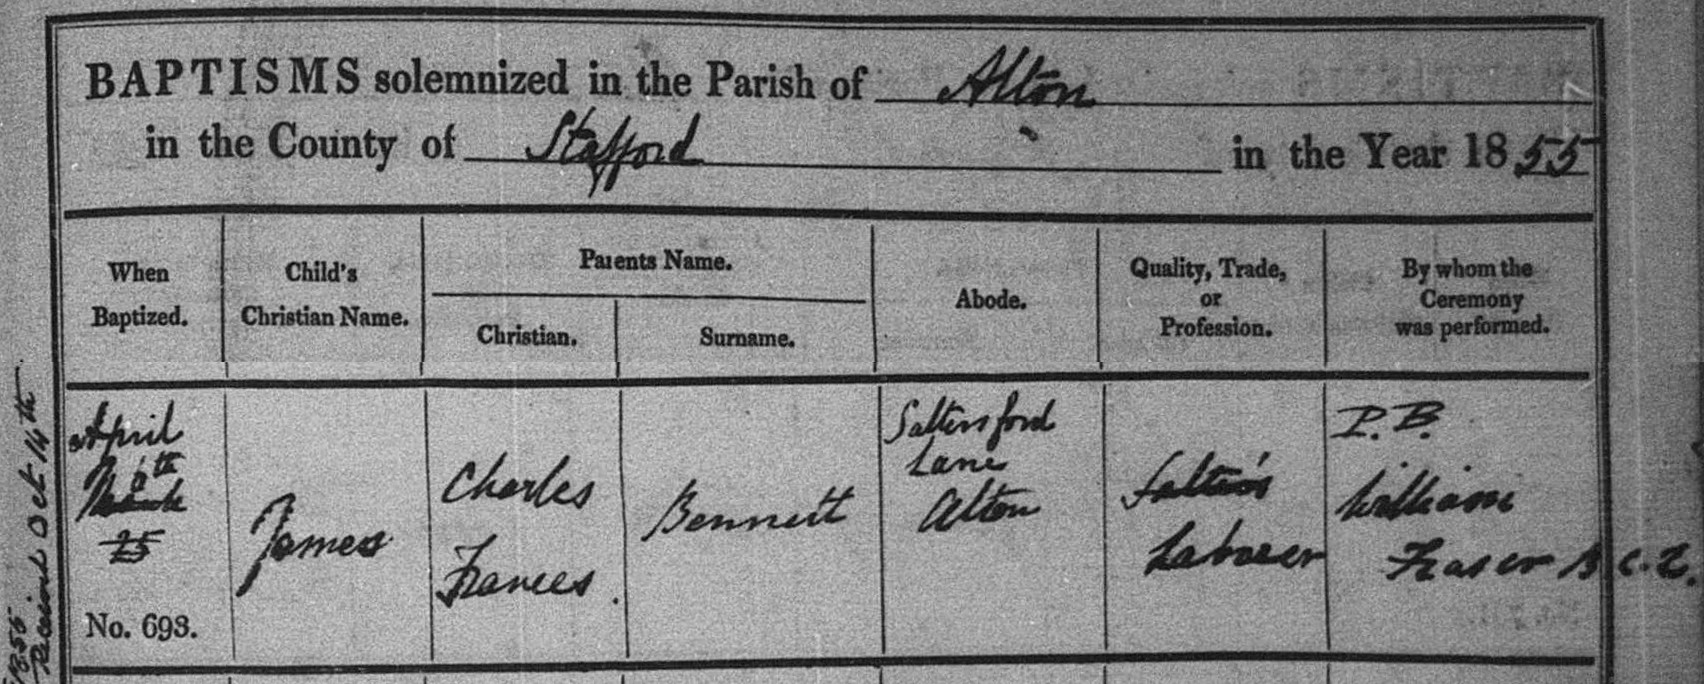 BAPTISMS solemnized in the Parish of Alton
in the County of Stafford in the Year 1855
When
Baptized.
Child's
Christian Name.
Parents Name.
Christian.
Surname.
Abode.
Quality, Trade,
or
Profession.
By whom the
Ceremony
was performed.
April
8th
March
25
No. 693.
James
Charles
Frances.
Bennett
Saltersford
Lane
Alton
Labourer
P. B.
William
Fraser B.C.L.
1855
Received Oct 14th